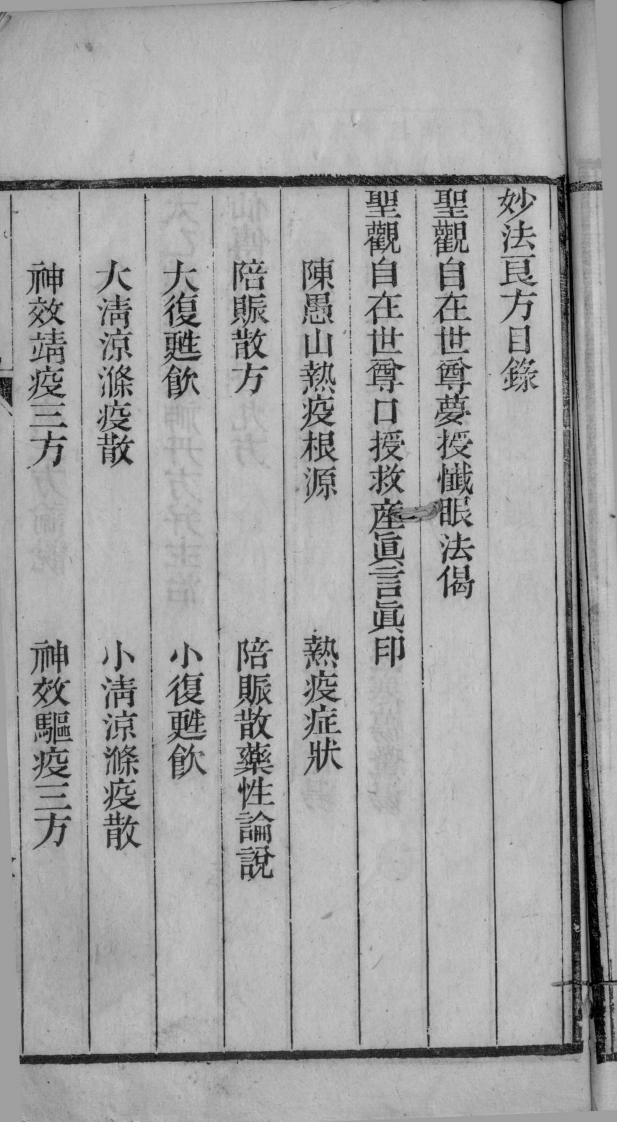 妙法良方目錄
聖觀自在世尊夢授懺眼法偈
聖觀自在世尊口授救產眞言眞印
陳愚山熱疫根源 熱疫症狀
陪賑散方 陪賑散藥性論說
大復甦飲 小復甦飲
大淸涼滌疫散 小淸涼滌疫散
神效靖疫三方 神效驅疫三方